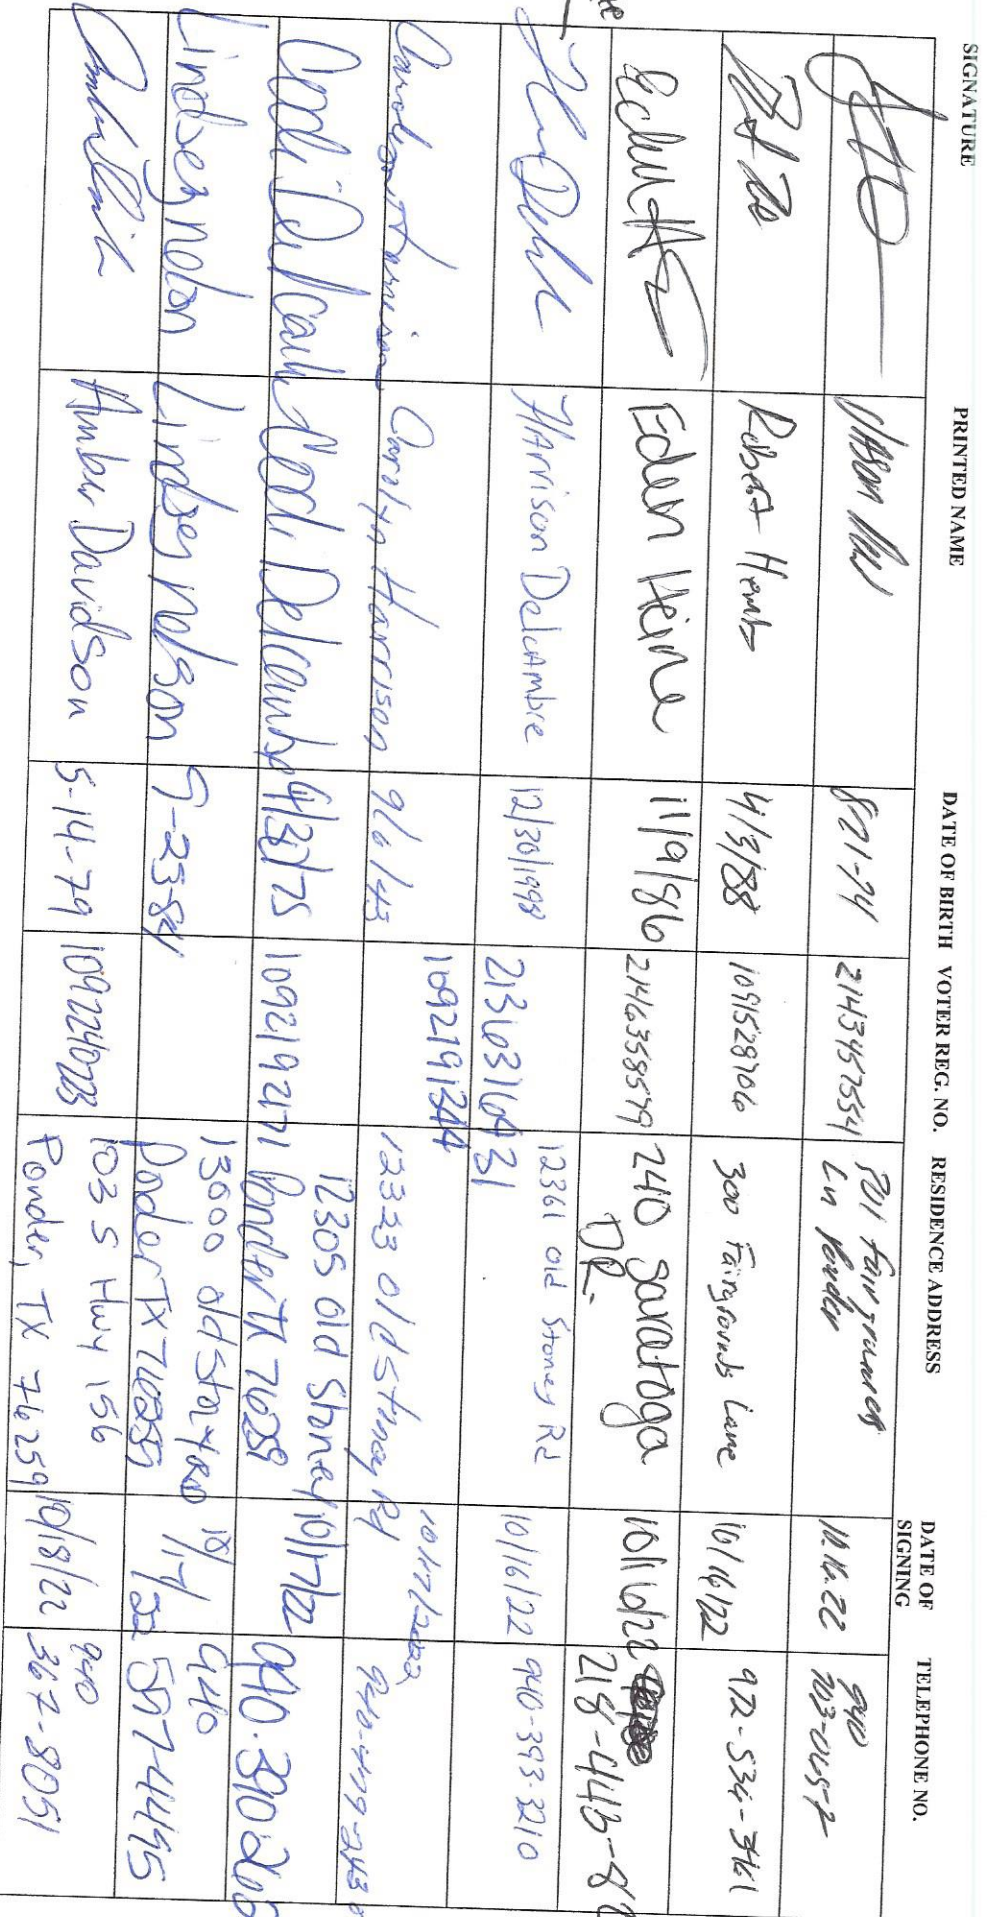 SIGNATURE PRINTED NAME DATE OF BIRTH VOTER REG. NO. RESIDENCE ADDRESS DATE OF SIGNING TELEPHONE NO.
8-21-74 2143457554 Fairgrounds Ln Ponder 10.16.22 940
Robert 4/3/88 1091528906 300 Fairgrounds Lane 10/16/22
Eden Heine 11/9/86 2146358579 240 Saratoga DR. 10/16/22 218-446-8
Harrison Delcambre 12/30/1998 2131631693 12361 Old Stoney Rd 10/16/22 940-393-3210
Carolyn Harrison Carolyn Harrison 9/6/43 1092191344 12333 Old Stoney Rd 10/17/2022
Codi Delcambre 1092192171 12305 Old Stoney Ponder TX 76259 10/17/22
Lindsey nolson Lindsey nolson 9-23-84 13000 old Stoney Road 10/17/22 940 597-4495
Amber Davidson 5-14-79 1092240723 103 S Hwy 156 Ponder, TX 76259 10/18/22 940 367-8051